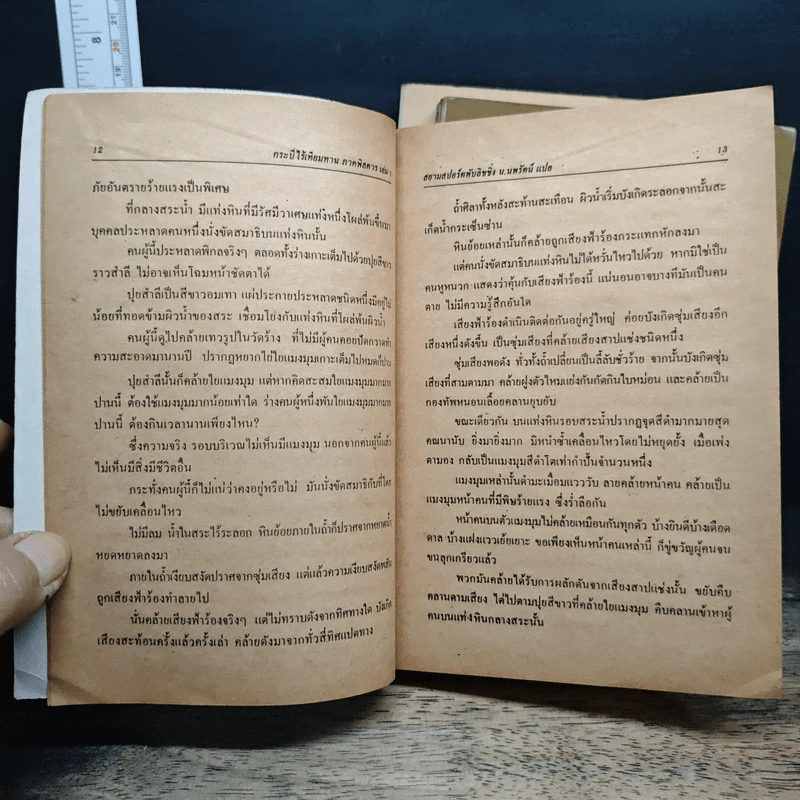 12
กระบี่ไร้เทียมทาน ภาคพิสดาร เล่ม
ภัยอันตรายร้ายแรงเป็นพิเศษ
ที่กลางสระน้ำ มีแท่งหินที่มีรัศมีวาเศษแท่งหนึ่งโผล่พ้นขึ้นมา
บุคคลประหลาดคนหนึ่งนั่งขัดสมาธิบนแท่งหินนั้น
คนผู้นี้ประหลาดพิกลจริงๆ ตลอดทั้งร่างเกาะเต็มไปด้วยปุยสีขาว
ราวสำลี ไม่อาจเห็นโฉมหน้าชัดตาได้
ปุยสำลีเป็นสีขาวอมเทา แผ่ประกายประหลาดชนิดหนึ่งมีอยู่ไม่
น้อยที่ทอดข้ามผิวน้ำของสระ เชื่อมโยงกับแท่งหินที่โผล่พ้นผิวน้ำ
คนผู้นี้ดูไปคล้ายเทวรูปในวัดร้าง ที่ไม่มีผู้คนคอยปัดกวาดทำ
ความสะอาดมานานปี ปรากฏหยากไย่ใยแมงมุมเกาะเต็มไปหมดก็ปาน
ปุยสำลีนั้นก็คล้ายใยแมงมุม แต่หากคิดสะสมใยแมงมุมมากมาย
ปานนี้ ต้องใช้แมงมุมมากน้อยเท่าใด ร่างคนผู้หนึ่งพันใยแมงมุมมากมาย
ปานนี้ ต้องกินเวลานานเพียงไหน?
ซึ่งความจริง รอบบริเวณไม่เห็นมีแมงมุม นอกจากคนผู้นี้แล้ว
ไม่เห็นมีสิ่งมีชีวิตอื่น
กระทั่งคนผู้นี้ก็ไม่แน่ว่าคงอยู่หรือไม่ มันนั่งขัดสมาธิกับที่โดย
ไม่ขยับเคลื่อนไหว
ไม่มีลม น้ำในสระไร้ระลอก หินย้อยภายในถ้ำก็ปราศจากหยาดน้ำ
หยดหยาดลงมา
ภายในถ้ำเงียบสงัดปราศจากซุ่มเสียง แต่แล้วความเงียบสงัดพลัน
ถูกเสียงฟ้าร้องทำลายไป
นั่นคล้ายเสียงฟ้าร้องจริงๆ แต่ไม่ทราบดังจากทิศทางใด บังเกิด
เสียงสะท้อนครั้งแล้วครั้งเล่า คล้ายดังมาจากทั่วสี่ทิศแปดทาง
สยามสปอร์ตพับลิชชิ่ง น.นพรัตน์ แปล
13
ถ้ำศิลาทั้งหลังสะท้านสะเทือน ผิวน้ำเริ่มบังเกิดระลอกจากนั้นสะ
เก็ดน้ำกระเซ็นซ่าน
หินย้อยเหล่านั้นก็คล้ายถูกเสียงฟ้าร้องกระแทกหักลงมา
แต่คนนั่งขัดสมาธิบนแท่งหินไม่ได้หวั่นไหวไปด้วย หากมิใช่เป็น
คนหูหนวก แสดงว่าคุ้นกับเสียงฟ้าร้องนี้ แน่นอนอาจบางทีมันเป็นคน
ตาย ไม่มีความรู้สึกอันใด
เสียงฟ้าร้องดำเนินติดต่อกันอยู่ครู่ใหญ่ ค่อยบังเกิดซุ่มเสียงอีก
เสียงหนึ่งดังขึ้น เป็นซุ่มเสียงที่คล้ายเสียงสาปแช่งชนิดหนึ่ง
ซุ่มเสียงพอดัง ทั่วทั้งถ้ำเปลี่ยนเป็นลี้ลับชั่วร้าย จากนั้นบังเกิดซุ่ม
เสียงที่สามตามมา คล้ายฝูงตัวไหมแย่งกันกัดกินใบหม่อน และคล้ายเป็น
กองทัพหนอนเลื้อยคลานยุบยับ
ขณะเดียวกัน บนแท่งหินรอบสระน้ำปรากฏจุดสีดำมากมายสุด
คณนานับ ยิ่งมายิ่งมาก มิหนำซ้ำเคลื่อนไหวโดยไม่หยุดยั้ง เมื่อเพ่ง
ตามอง กลับเป็นแมงมุมสีดำโตเท่ากำปั้นจำนวนหนึ่ง
แมงมุมเหล่านั้นดำมะเมื่อมแวววับ ลายคล้ายหน้าคน คล้ายเป็น
แมงมุมหน้าคนที่มีพิษร้ายแรง ซึ่งร่ำลือกัน
หน้าคนบนตัวแมงมุมไม่คล้ายเหมือนกันทุกตัว บ้างยินดีบ้างเดือด
ดาล บ้างแฝงแววเย้ยเยาะ ขอเพียงเห็นหน้าคนเหล่านี้ ก็ขู่ขวัญผู้คนจน
ขนลุกเกรียวแล้ว
พวกมันคล้ายได้รับการผลักดันจากเสียงสาปแช่งนั้น ขยับคืบ
คลานตามเสียง ไต่ไปตามปุยสีขาวที่คล้ายใยแมงมุม คืบคลานเข้าหาผู้
คนบนแท่งหินกลางสระนั้น